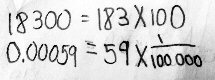 18300 = 183 X 100
0.00059 = 59 X 1/100 000